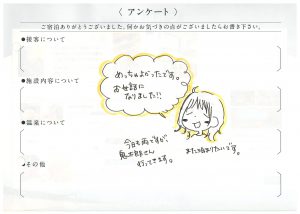 〈 アンケート 〉
ご宿泊ありがとうございました。何かお気づきの点がございましたらお書き下さい。
●接客について
めっちゃよかったです。
お世話に
なりました!!
●施設内容について
●温泉について
今日も雨ですが、
鬼太郎さん
行ってきます。
また泊まりたいです。
●その他